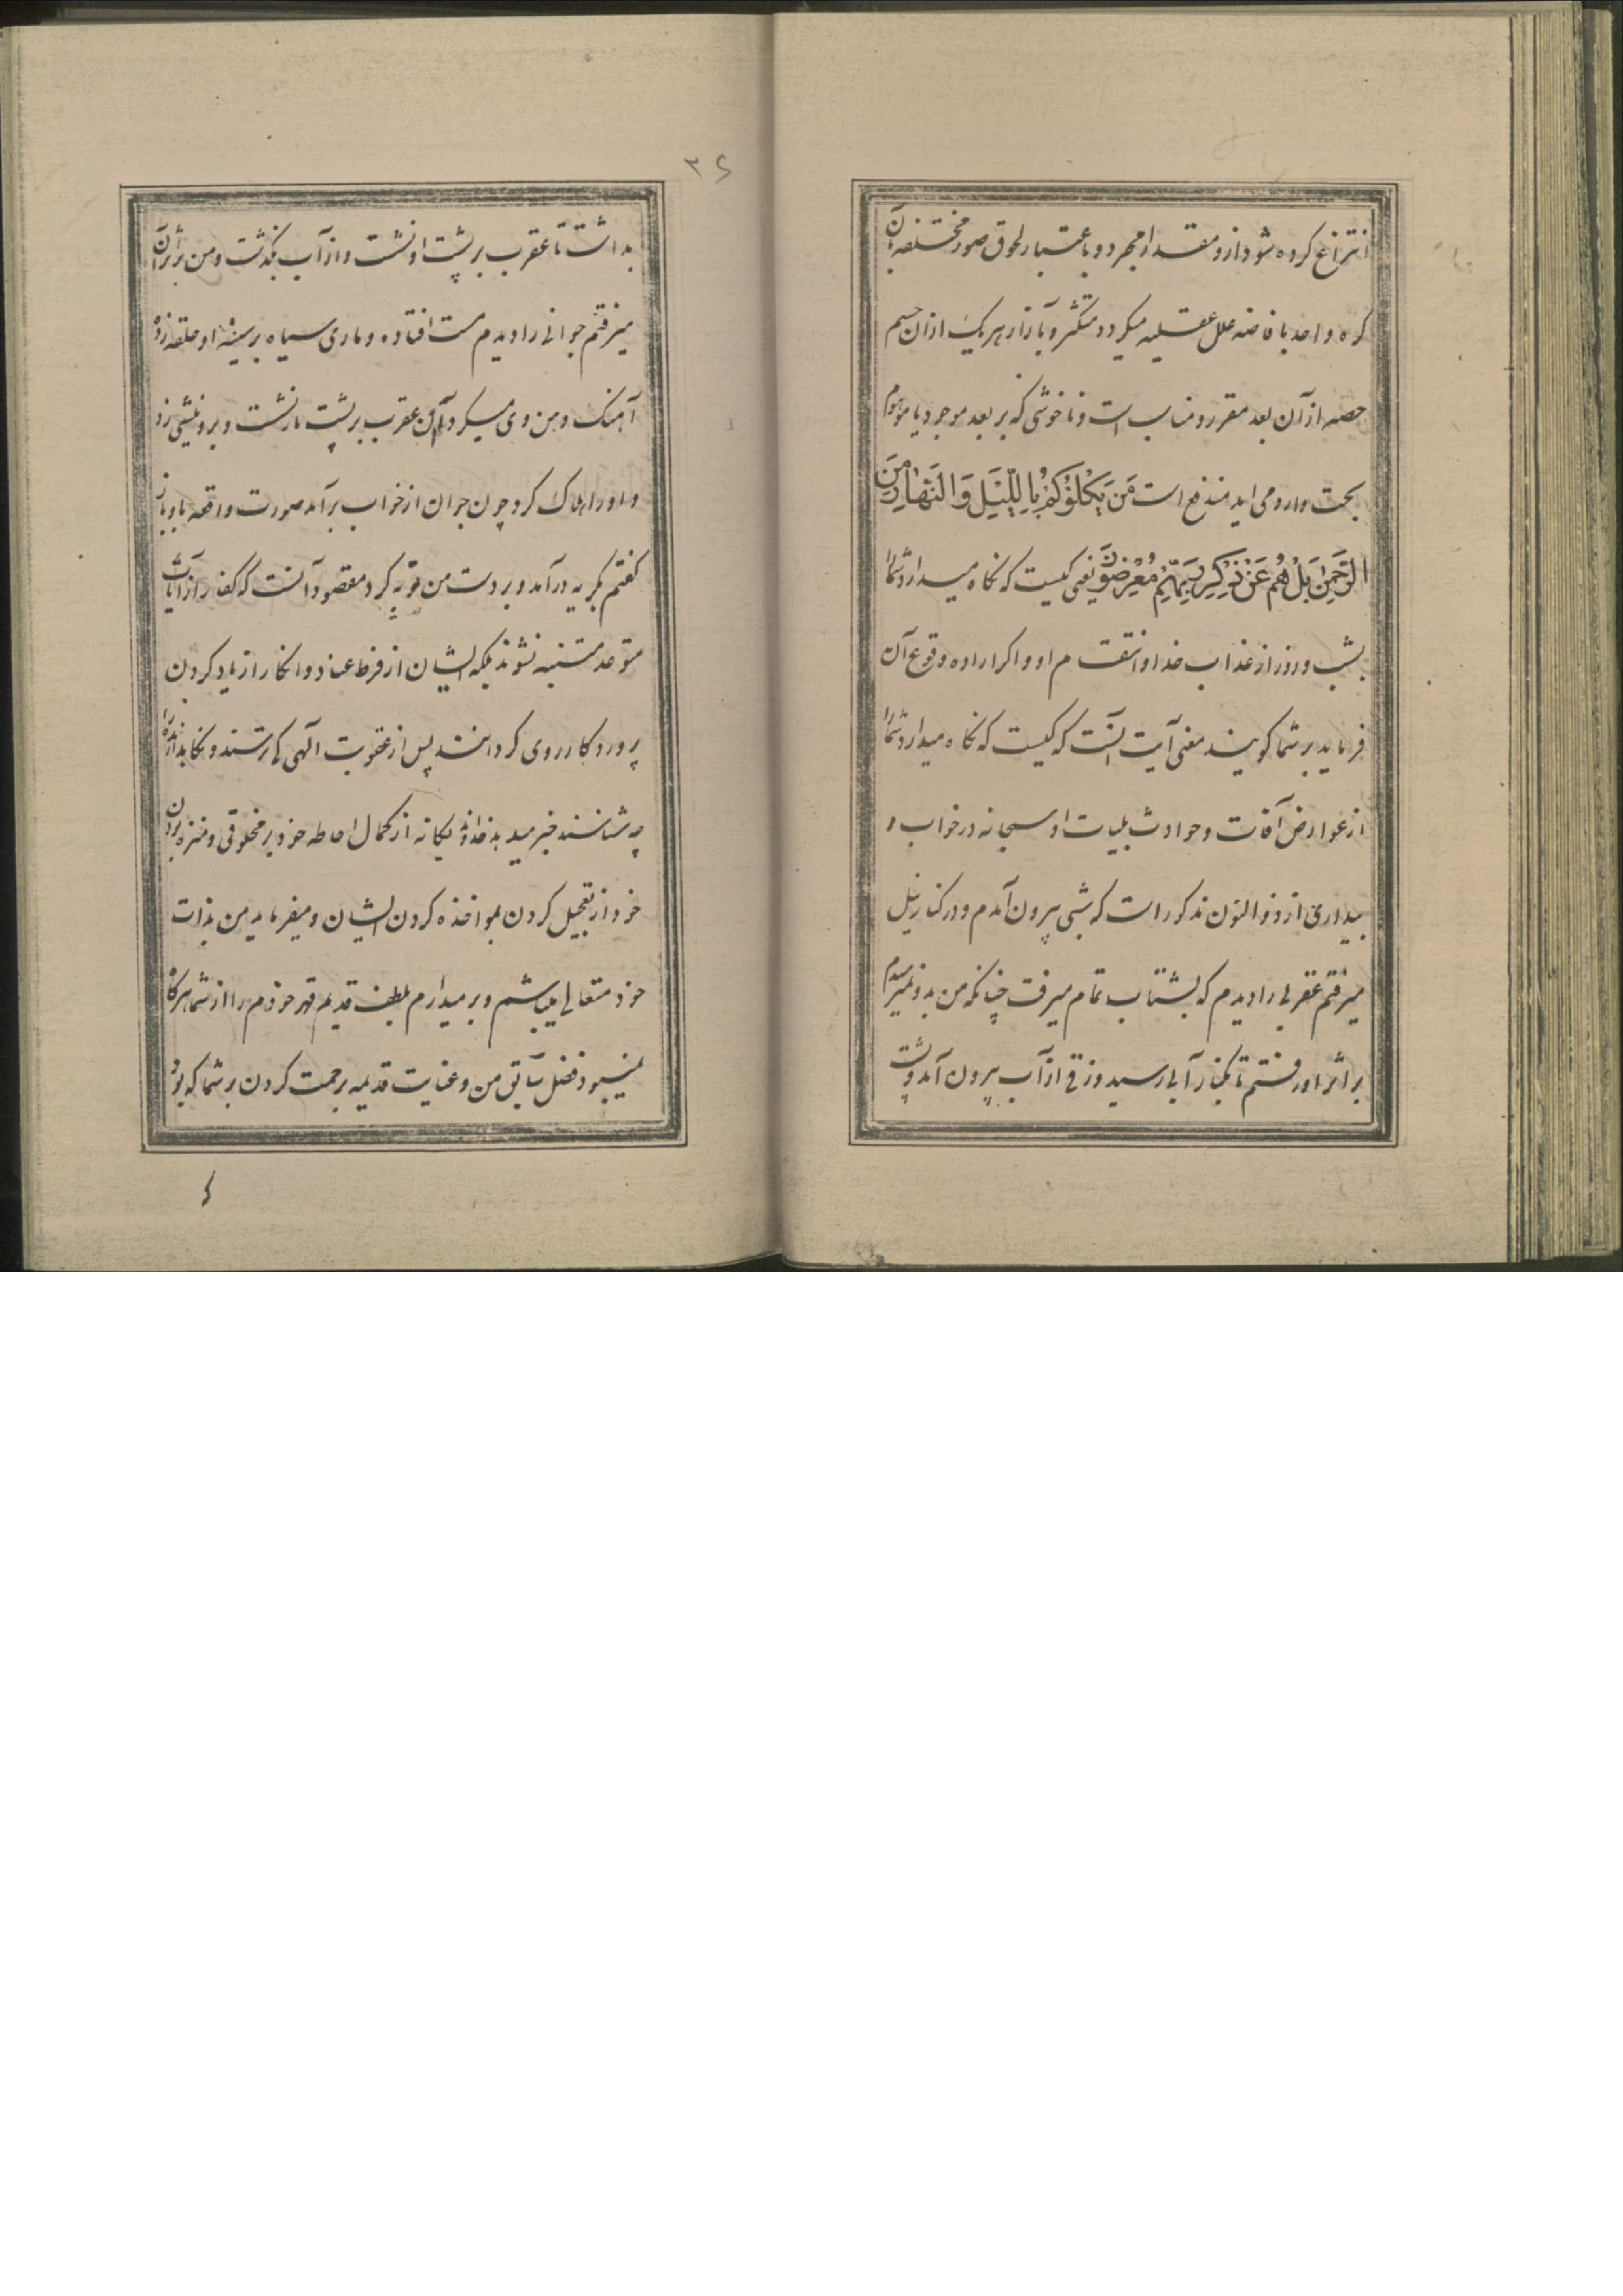 انتزاع کرده شود از و مقدار مجرد و باعتبار لحوق صور مختلفه بآن
کره واحد بافاضه علل عقلیه میکردد متکثر و بازار هر یک از ان جسم
حصه از آن بعد مقرر و مناسب است و ناخوشی که بر بعد موجود یا موهوم
بحت وارد می اید مندفع است مَن يَكْلَؤُكُم بِاللَّيْلِ وَالنَّهَارِ مِنَ
الرَّحْمٰنِ بَلْ هُمْ عَن ذِكْرِ رَبِّهِم مُّعْرِضُونَ یعنی کیست که نکاه میدارد شمارا
بشب و روز از عذاب خدا و انتقام او و اکر اراده وقوع آن
فرماید بر شما کویند معنی آیت آنست که کیست که نکاه میدارد شمارا
از عوارض آفات و حوادث بلیات او سبحانه در خواب و
بیداری از ذوالنون مذکور است که شبی بیرون آمدم و در کنار نیل
میرفتم عقربی را دیدم که بشتاب تمام میرفت چنانکه من بدو نمیرسیدم
بر اثر او رفتم تا بکنار آبی رسید وزقی از آب بیرون آمد و پشت
۳۶
بداشت تا عقرب بر پشت او نشست و از آب بکذشت و من بر اثر آن
میرفتم جوانی را دیدم مست افتاده و ماری سیاه بر سینهٔ او حلقه زده
آهنک دهن وی میکرد آن عقرب بر پشت مار نشست و برو نیشی زد
و او را هلاک کرد چون جوان از خواب برآمد صورت واقعه با او باز
کفتم بکریه درآمد و بر دست من توبه کرد مقصود آنست که کفار از آیات
متوعد متنبه نشوند بلکه ایشان از فرط عناد و انکار از یاد کردن
پروردکار روی کردانند پس از عقوبت آلهی کی ترسند و نکاهدارنده را
چه شناسند خبر میدهد خداوند یکانه از کمال احاطه خود بر مخلوقی و منزه بودن
خود از تعجیل کردن بمواخذه کردن ایشان و میفرماید من بذات
خود متعالی میباشم و بر میدارم بلطف قدیم قهر خودم را از شما هرکاه
نمیبود فضل سابق من و عنایت قدیمه برحمت کردن بر شما که بود